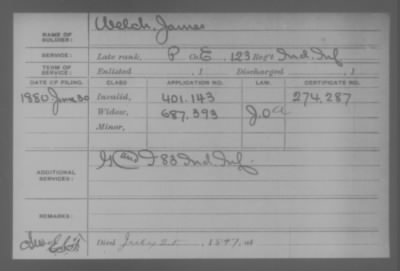 NAME OF SOLDIER: Welch, James
SERVICE: Late rank, P Co. E, 123 Reg't Ind. Inf.
TERM OF SERVICE: Enlisted , 1 Discharged , 1
DATE OF FILING. CLASS. APPLICATION NO. LAW. CERTIFICATE NO.
1880 June 30 Invalid, 401.143 274.287
Widow, 687.393 J.O.a
Minor,
ADDITIONAL SERVICES: G and I 83 Ind. Inf.
REMARKS:
Died July 25, 1897, at